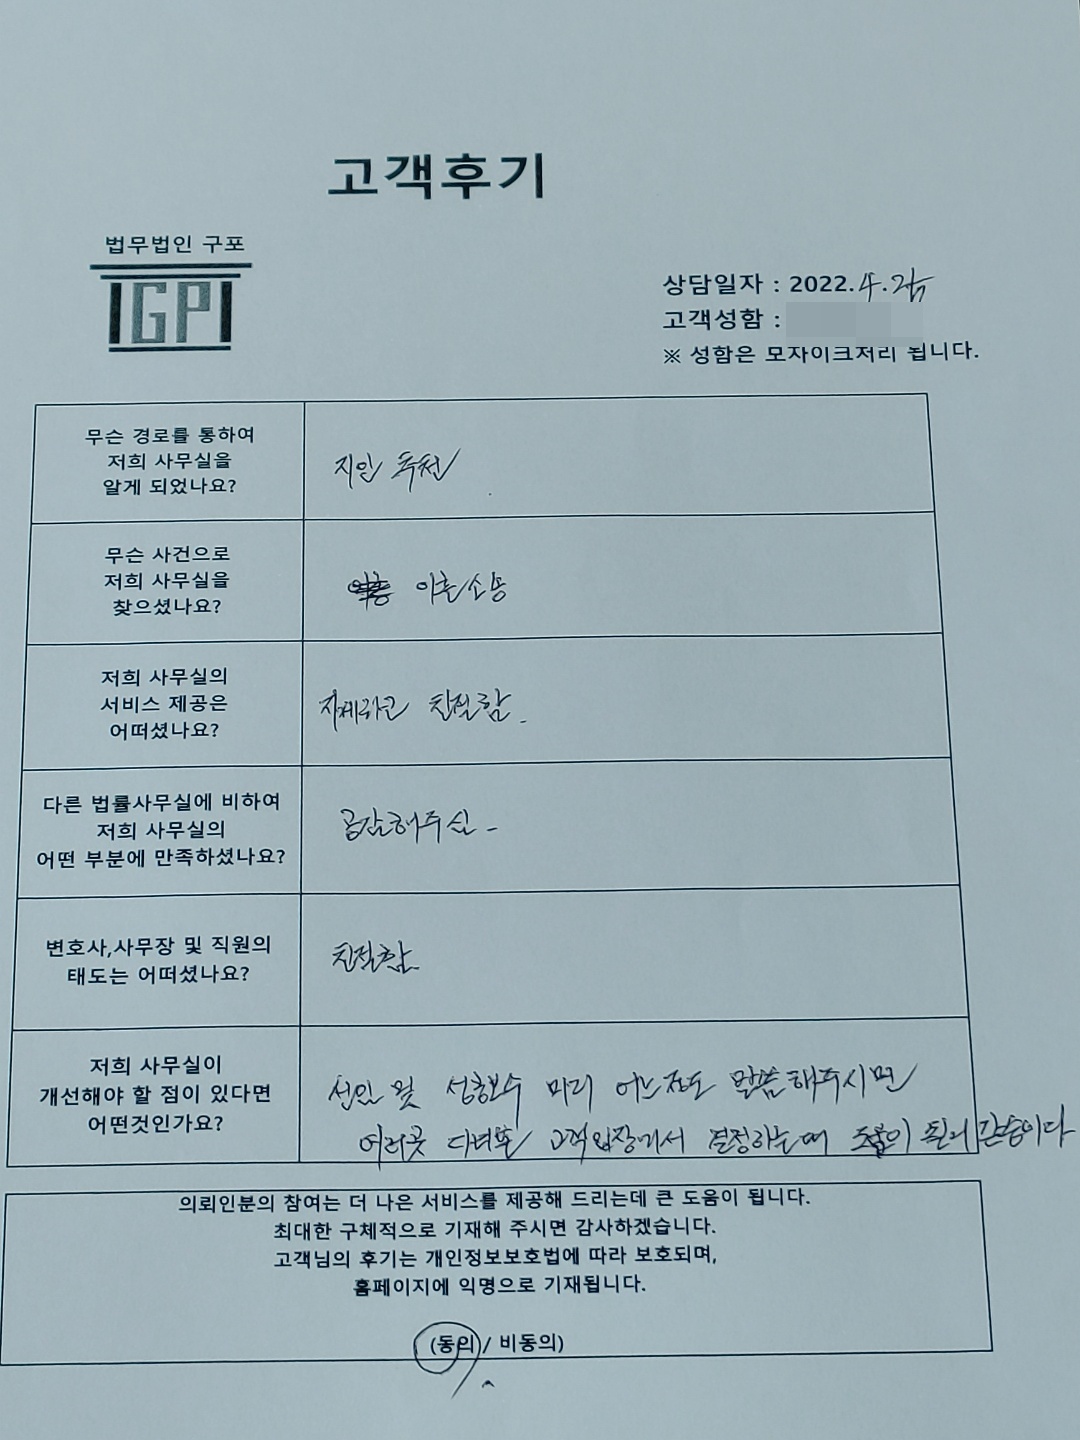 고객후기
법무법인 구포
IGPI
상담일자 : 2022.4.25
고객성함 :
※ 성함은 모자이크처리 됩니다.
무슨 경로를 통하여
저희 사무실을
알게 되었나요?
지인 추천
무슨 사건으로
저희 사무실을
찾으셨나요?
이혼소송
저희 사무실의
서비스 제공은
어떠셨나요?
자세하고 친절함.
다른 법률사무실에 비하여
저희 사무실의
어떤 부분에 만족하셨나요?
공감해주심
변호사,사무장 및 직원의
태도는 어떠셨나요?
친절함.
저희 사무실이
개선해야 할 점이 있다면
어떤것인가요?
선임 및 성공보수 미리 어느정도 말씀해주시면
여러곳 다녀본 고객입장에서 결정하는데 도움이 될거 같습니다
의뢰인분의 참여는 더 나은 서비스를 제공해 드리는데 큰 도움이 됩니다.
최대한 구체적으로 기재해 주시면 감사하겠습니다.
고객님의 후기는 개인정보보호법에 따라 보호되며,
홈페이지에 익명으로 기재됩니다.
(동의 / 비동의)